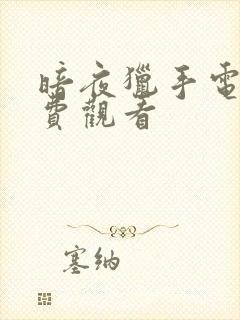 暗夜獵手電
費觀看
塞納